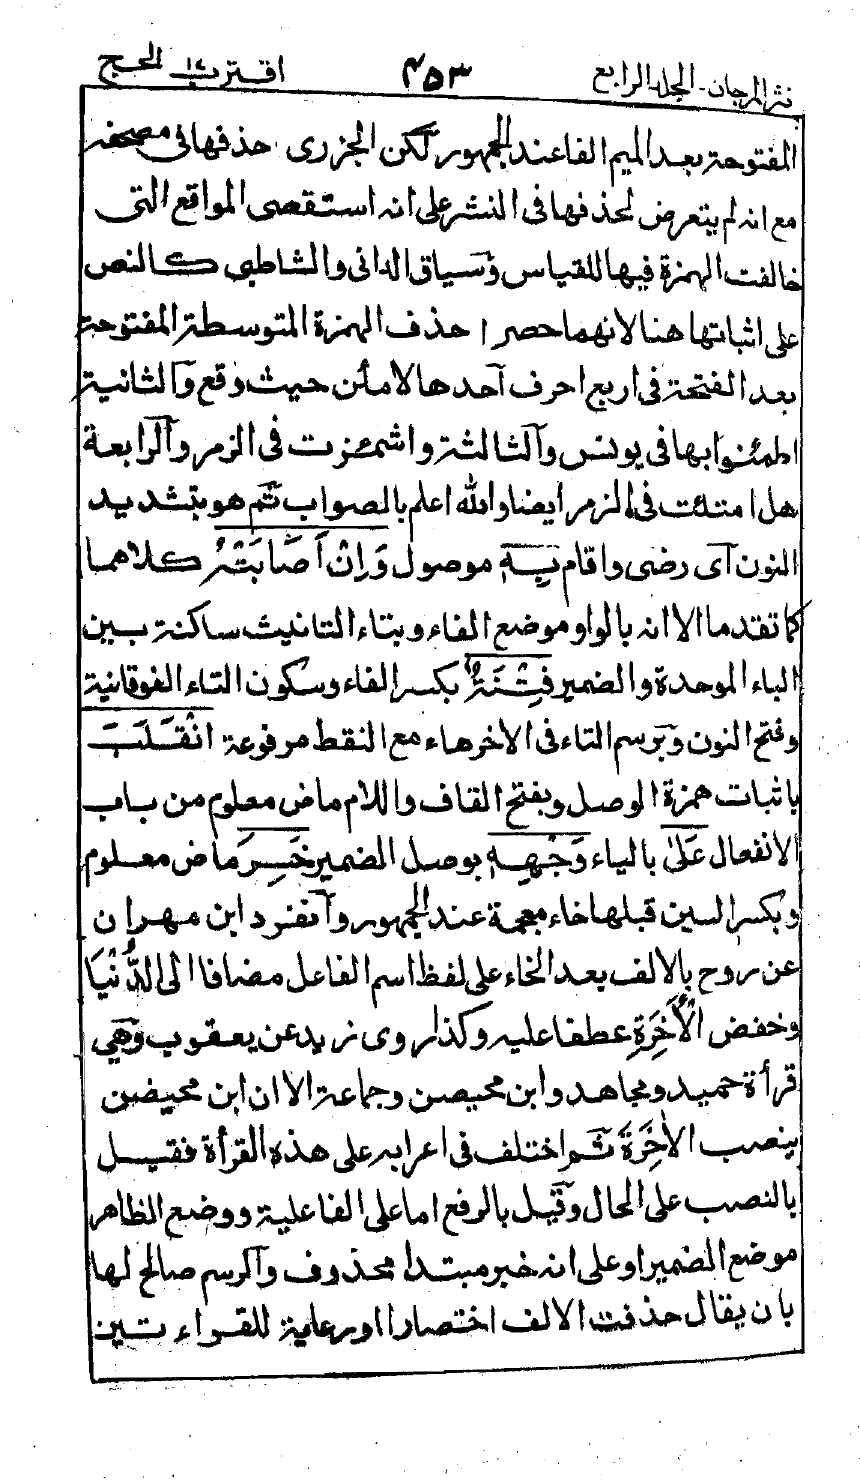 نثر المرجان - المجلد الرابع ٤٥٣ اقترب ١٧ الحج
المفتوحة بعد الميم الفا عند الجمهور لكن الجزرى حذفها فى مصحفه
مع انه لم يتعرض لحذفها فى النشر على انه استقصى المواقع التى
خالفت الهمزة فيها للقياس وسياق الدانى والشاطبى كالنص
على اثباتها هنا لانهما حصرا حذف الهمزة المتوسطة المفتوحة
بعد الفتحة فى اربع احرف آحدها لاملئن حيث وقع وآلثانية
اطمئنوا بها فى يونس وآلثالثة واشمئزت فى الزمر وآلرابعة
هل امتلئت فى الزمر ايضا والله اعلم بالصواب ثم هو بتشديد
النون آى رضى واقام بِهٖ موصول وَاِنْ اَصَابَتْهُ كلاهما
كما تقدما الا انه بالواو موضع الفاء وبتاء التانيث ساكنة بين
الباء الموحدة والضمير فِتْنَةٌ بكسر الفاء وسكون التاء الفوقانية
وفتح النون وبرسم التاء فى الاخر هاء مع النقط مرفوعة انْقَلَبَ
باثبات همزة الوصل وبفتح القاف واللام ماض معلوم من باب
الانفعال عَلٰى بالياء وَجْهِهٖ بوصل الضمير خَسِرَ ماض معلوم
وبكسر السين قبلها خاء معجمة عند الجمهور وآنفرد ابن مهران
عن روح بالالف بعد الخاء على لفظ اسم الفاعل مضافا الى الدُّنْيَا
وخفض الْاٰخِرَةِ عطفا عليه وكذا روى زيد عن يعقوب وهى
قرأة حميد ومجاهد وابن محيصن وجماعة الا ان ابن محيضن
ينصب الاٰخِرَةَ ثم اختلف فى اعرابه على هذه القرأة فقيل
بالنصب على الحال وقيل بالرفع اما على الفاعلية ووضع الظاهر
موضع الضمير او على انه خبر مبتدا محذوف وآلرسم صالح لها
بان يقال حذفت الالف اختصارا او رعاية للقراءتين